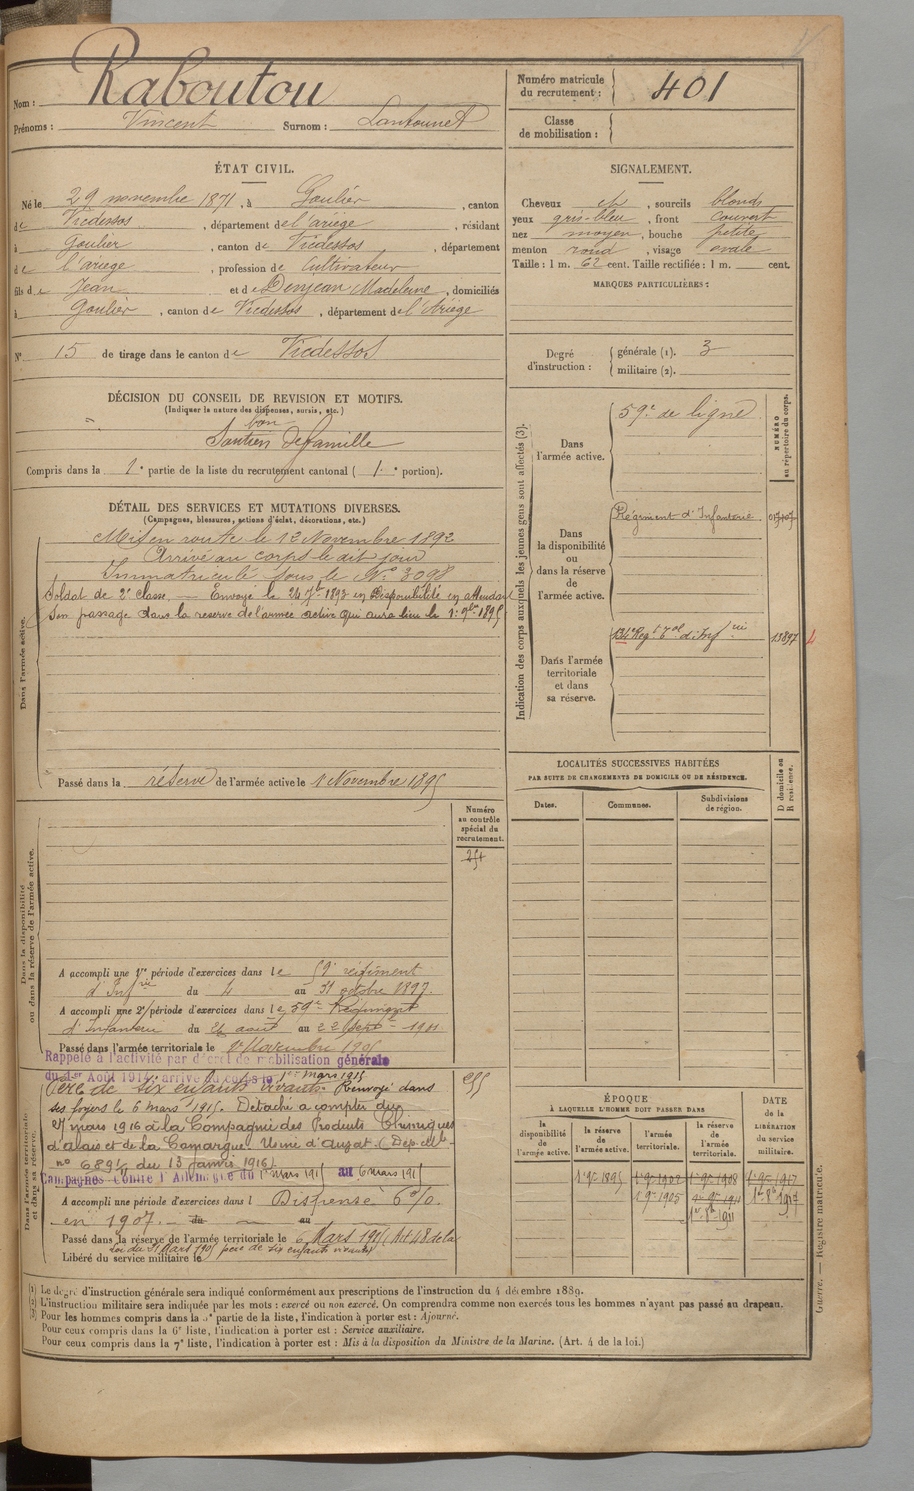 Nom : Raboutou
Prénoms : Vincent Surnom : Lantounet
Numéro matricule du recrutement : 401
Classe de mobilisation :
ÉTAT CIVIL.
Né le 29 novembre 1871, à Goulier, canton
de Vicdessos, département de l'ariège, résidant
à Goulier, canton de Vicdessos, département
de l'ariege, profession de Cultivateur
fils de Jean et de Denjean Madeleine, domiciliés
à Goulier, canton de Vicdessos, département de l'Ariège
N° 15 de tirage dans le canton de Vicdessos
SIGNALEMENT.
Cheveux et, sourcils blonds
yeux gris-bleu, front couvert
nez moyen, bouche petite
menton rond, visage ovale
Taille : 1 m. 62 cent. Taille rectifiée : 1 m. cent.
MARQUES PARTICULIÈRES :
Degré d'instruction :
générale (1). 3
militaire (2).
DÉCISION DU CONSEIL DE REVISION ET MOTIFS.
(Indiquer la nature des dispenses, sursis, etc.)
bon
Soutien de famille
Compris dans la 1e partie de la liste du recrutement cantonal ( 1e portion).
DÉTAIL DES SERVICES ET MUTATIONS DIVERSES.
(Campagnes, blessures, actions d'éclat, décorations, etc.)
Dans l'armée active.
Mis en route le 12 Novembre 1892
Arrivé au corps le dit jour
Immatriculé sous le N° 3098
Soldat de 2e classe. — Envoyé le 24 7bre 1893 en Disponibilité en attendant
Son passage dans la reserve de l'armée active qui aura lieu le 1er 9bre 1895
Passé dans la réserve de l'armée active le 1 Novembre 1895
Indication des corps auxquels les jeunes gens sont affectés (3).
NUMÉRO au répertoire du corps.
Dans l'armée active.
59e de ligne
Dans la disponibilité ou dans la réserve de l'armée active.
Régiment d'Infanterie
Dans l'armée territoriale et dans sa réserve.
134e Regt Tal d'Infrie
13897
LOCALITÉS SUCCESSIVES HABITÉES
PAR SUITE DE CHANGEMENTS DE DOMICILE OU DE RÉSIDENCE.
Dates. Communes. Subdivisions de région.
D domicile ou R résidence.
Dans la disponibilité ou dans la réserve de l'armée active.
Numéro au contrôle spécial du recrutement.
A accompli une 1re période d'exercices dans le 59e régiment
d'Infrie du 4 au 31 octobre 1897.
A accompli une 2e période d'exercices dans le 59e Régiment
d'Infanterie du 26 août au 22 Sept 1901
Passé dans l'armée territoriale le 1er Novembre 1905
Dans l'armée territoriale et dans sa réserve.
Rappelé à l'activité par décret de mobilisation générale
du 1er Août 1914, arrivé au corps le 1er Mars 1915
Père de six enfants vivants. Renvoyé dans
ses foyers le 6 mars 1915. Détaché a compter du
27 mars 1916 à la Compagnie des Produits Chimiques
d'alais et de la Camargue. Usine d'auzat. (Dép.elle
n° 6895 du 13 janvier 1916)
Campagnes contre l'Allemagne du 1er mars 1915 au 6 mars 1915
A accompli une période d'exercices dans l Dispensé 6%
en 1907. du au
Passé dans la réserve de l'armée territoriale le 6 Mars 1915 (Art 48 de la
loi du 21 Mars 1905 père de six enfants vivants)
Libéré du service militaire le
ÉPOQUE
À LAQUELLE L'HOMME DOIT PASSER DANS
la disponibilité de l'armée active.
la réserve de l'armée active.
l'armée territoriale.
la réserve de l'armée territoriale.
DATE de la LIBÉRATION du service militaire.
1er 9bre 1895 1er 9bre 1902 1er 9bre 1908 1er 9bre 1917
1er 9bre 1905 1911 1er 8bre 1917
1er 8bre 1911
(1) Le degré d'instruction générale sera indiqué conformément aux prescriptions de l'instruction du 4 décembre 1889.
(2) L'instruction militaire sera indiquée par les mots : exercé ou non exercé. On comprendra comme non exercés tous les hommes n'ayant pas passé au drapeau.
(3) Pour les hommes compris dans la 5e partie de la liste, l'indication à porter est : Ajourné.
Pour ceux compris dans la 6e liste, l'indication à porter est : Service auxiliaire.
Pour ceux compris dans la 7e liste, l'indication à porter est : Mis à la disposition du Ministre de la Marine. (Art. 4 de la loi.)
Guerre. — Registre matricule.